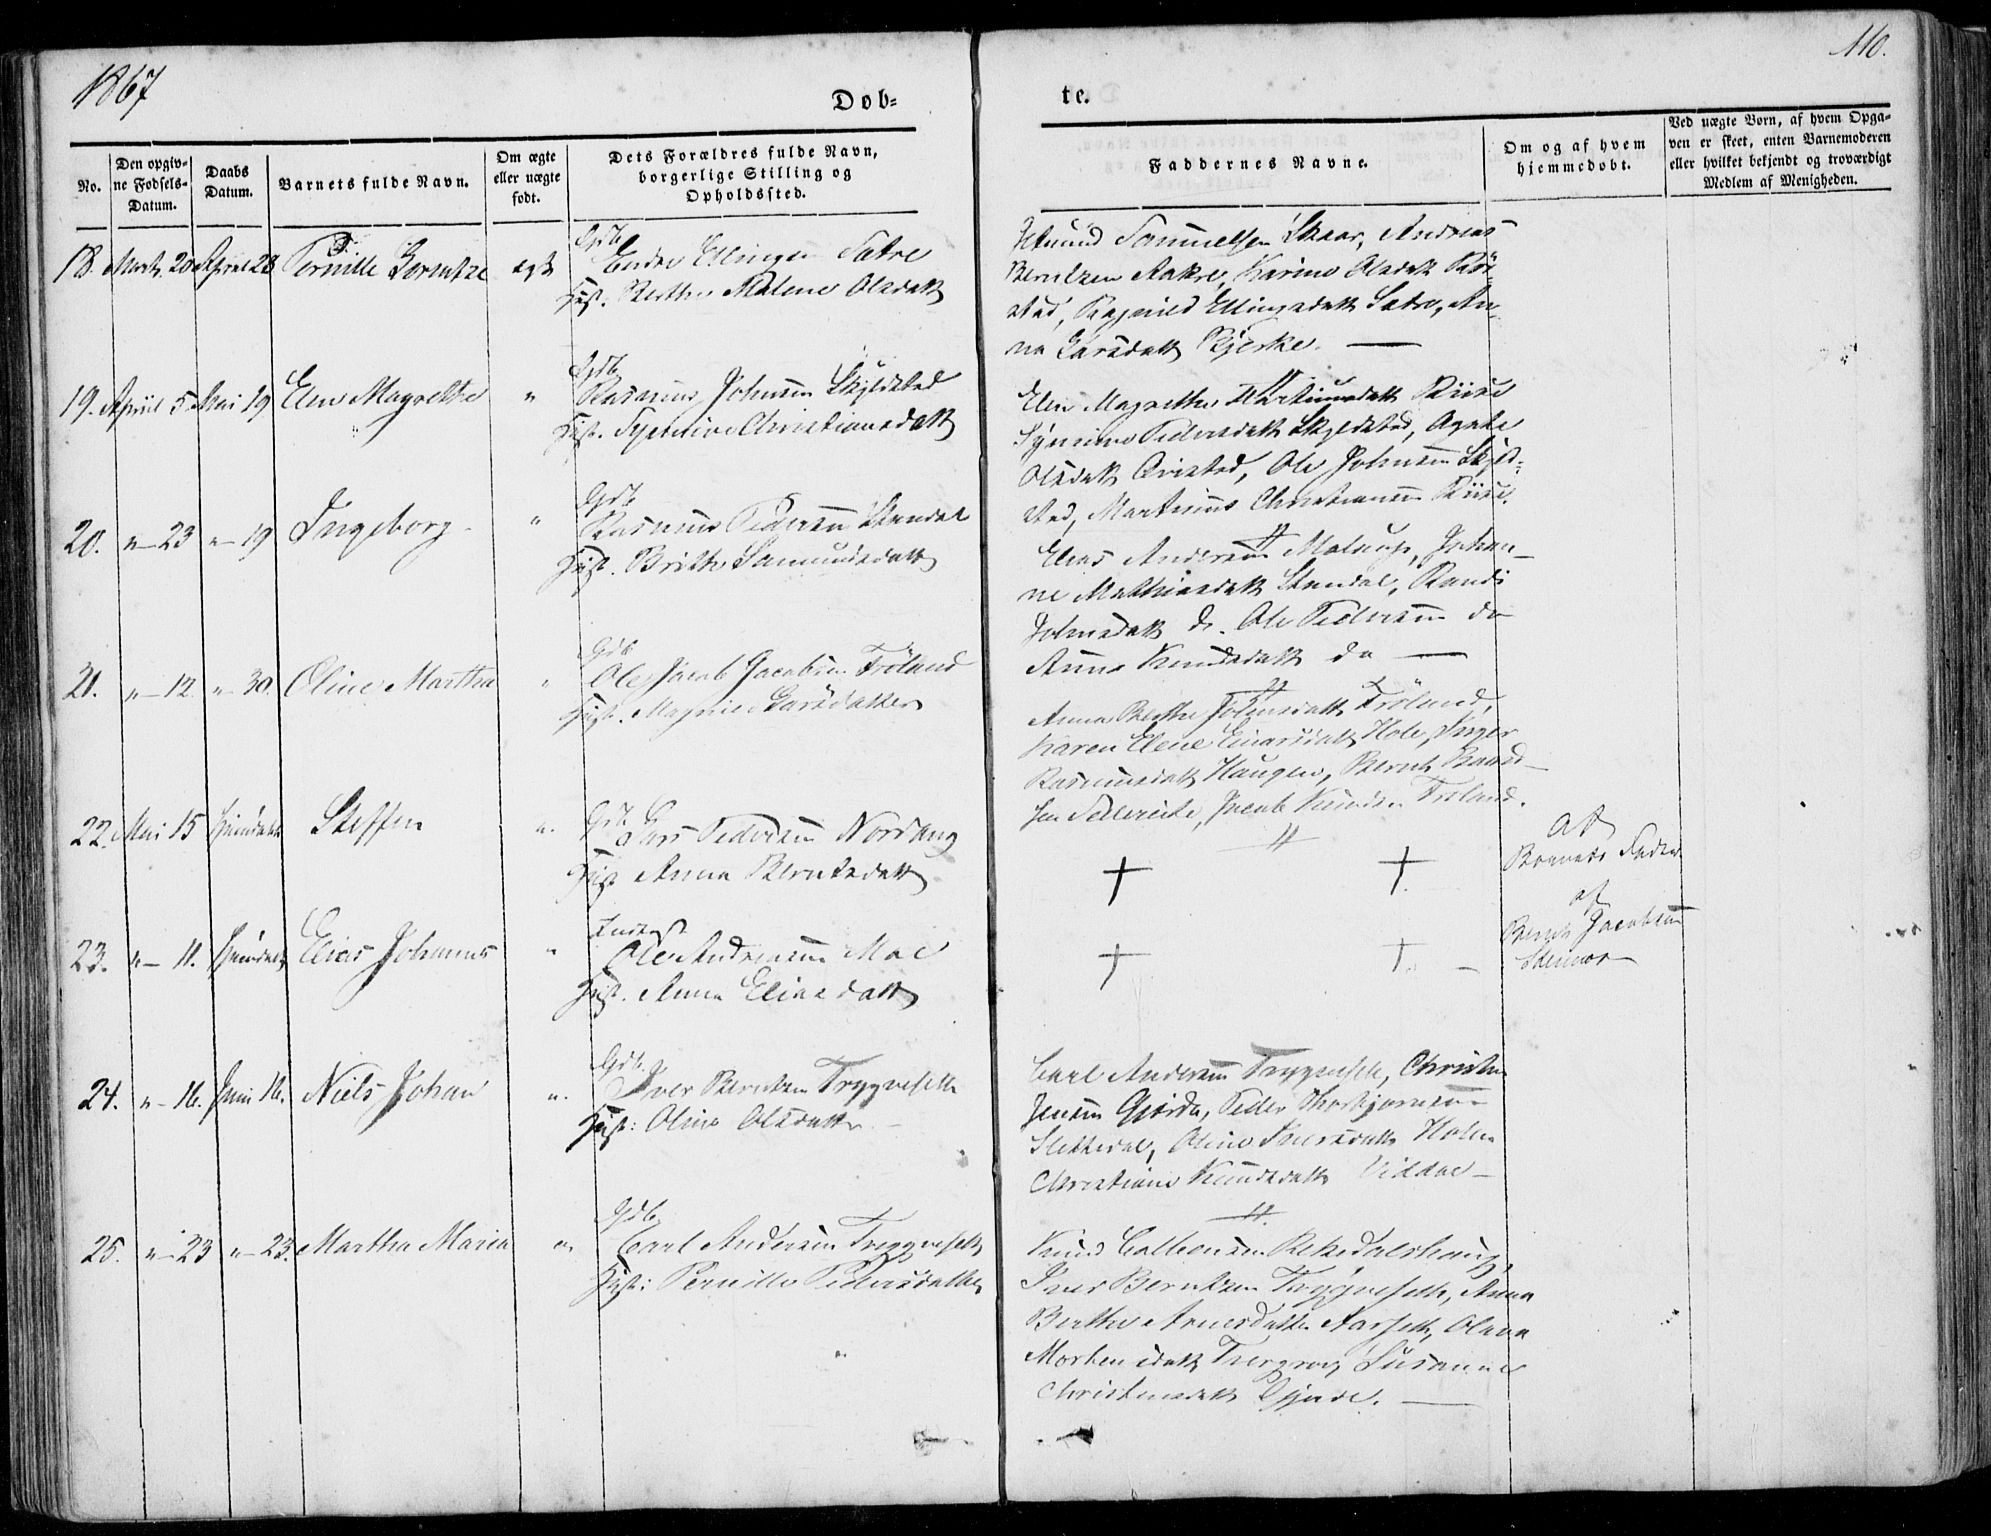 1867
110.
Dob-
te.
No.
Den opgiv-
ne Fodsels-
Datum.
Daabs
Datum.
Barnets fulde Navn.
Om ægte
eller uægte
fodt.
Dets Forældres fulde Navn,
borgerlige Stilling og
Opholdssted.
Faddernes Navne.
Om og af hvem
hjemmedobt.
Ved uægte Born, af hvem Opga-
ven er skeet, enten Barnemoderen
eller hvilket bekjendt og troværdigt
Medlem af Menigheden.
18. Marts 20 April 28 Pernille Lorentze ægte
Gdb.
Endre Ellingsen Satre
Hust. Berthe Malene Olsdatt
Samuelsen Skaar, Andreas
Berntzen Aakre, Karine Olsdatt
Ragnild Ellingsdatt Satre, An-
na Larsdatt Bjerke. —
19. April 5 Mai 19 Elen Magrethe "
Gdb
Rasmus Johnsen Skjldsted
Hust. Christiansdatt
Elen Magrethe Martinusdatt Riise
Synnive Pedersdatt Skjldsted, Agate
Olsdatt Ovrsted, Ole Johnsen Skjld-
sted, Martinus Christiansen Riise.
20. " — 23 " — 19 Ingeborg "
Gdb
Rasmus Pedersen Standal
Hust. Brithe Samundsdatt
Elias Andersen Johan-
ne Mathiasdatt Standal, Randi
Johnsdatt do. Ole Pedersen do
Anne Knudsdatt do —
21. " — 12 " — 30. Oline Martha "
Gdb
Ole Jacob Jacobsen Tröland
Hust. Magnie Larsdatter
Anna Berthe Johnsdatt Tröland,
Karen Elene Einarsdatt Hole, Inger
Rasmusdatt Haugen, Bernt Baard-
sen Jacob Knudsen Tröland.
22. Mai 15 Hjemdøbt Steffen "
Gdb
Lars Pedersen Nordang
Hust Anna Berntsdatt
+ +
af
Barnets Fader
23. " — 11. Hjemdøbt Elias Johannes "
Inderst
Ole Andreasen Moe
Hust. Anna Eliasdatt
+ + —
af
Bernt Jacobsen
24. " — 16. Juni 16. Niels Johan "
Gdb.
Iver Berntzen Tryggeseth
Hust: Oline Olsdatt
Carl Andersen Tryggeseth, Christen
Jensen Gjørde, Peder Thorbjørnsen
Slettedal, Oline Iversdatt Holen
Christiane Knudsdatt Viddal —
25. " — 23 " — 23. Martha Maria "
Gdb
Carl Andersen Tryggeseth
Hust: Pernille Pedersdatter
Knud Rekkedalshaug,
Iver Berntzen Tryggeseth, Anna
Berthe Arnesdatter Aarseth, Olava
Mortensdatt Susanne
Christensdatt Gjørde. —